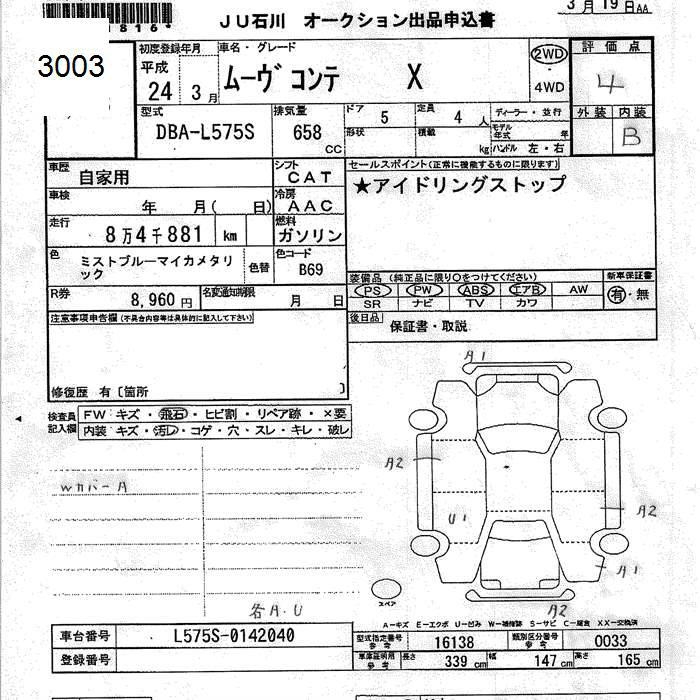 3月19日AA
816*
JU石川 オークション出品申込書
3003
初度登録年月 車名・グレード
平成 24 3月 ムーヴ コンテ X
2WD・4WD
評価点
4
外装 内装
B
型式 排気量 ドア 5 定員 4人 ディーラー・並行
DBA-L575S 658 CC 形状 積載 kg モデル年式 年 ハンドル 左・右
車歴 自家用 シフト CAT
セールスポイント(正常に機能するものに限ります)
★アイドリングストップ
車検 年 月( 日) 冷房 AAC
走行 8万4千881 km 燃料 ガソリン
色 ミストブルーマイカメタリック 色替 色コード B69
装備品(純正品に限り○をつけてください) 新車保証書
PS PW ABS エアB AW 有・無
SR ナビ TV カワ
R券 8,960円 名変通知期限 月 日
後日品 保証書・取説
注意事項申告欄(不具合内容等は具体的に記入して下さい)
修復歴 有〔箇所 〕
検査員記入欄 FW キズ・飛石・ヒビ割・リペア跡・×要
内装 キズ・汚レ・コゲ・穴・スレ・キレ・破レ
A1
A2
Wカバー A
U1
A2
A1
スペア
各A・U
A2
A-キズ E-エクボ U-凹み W-補修跡 S-サビ C-腐食 XX-交換済
車台番号 L575S-0142040
登録番号
型式指定番号参考 16138 類別区分番号参考 0033
車庫証明用参考 長さ 339cm 幅 147cm 高さ 165cm